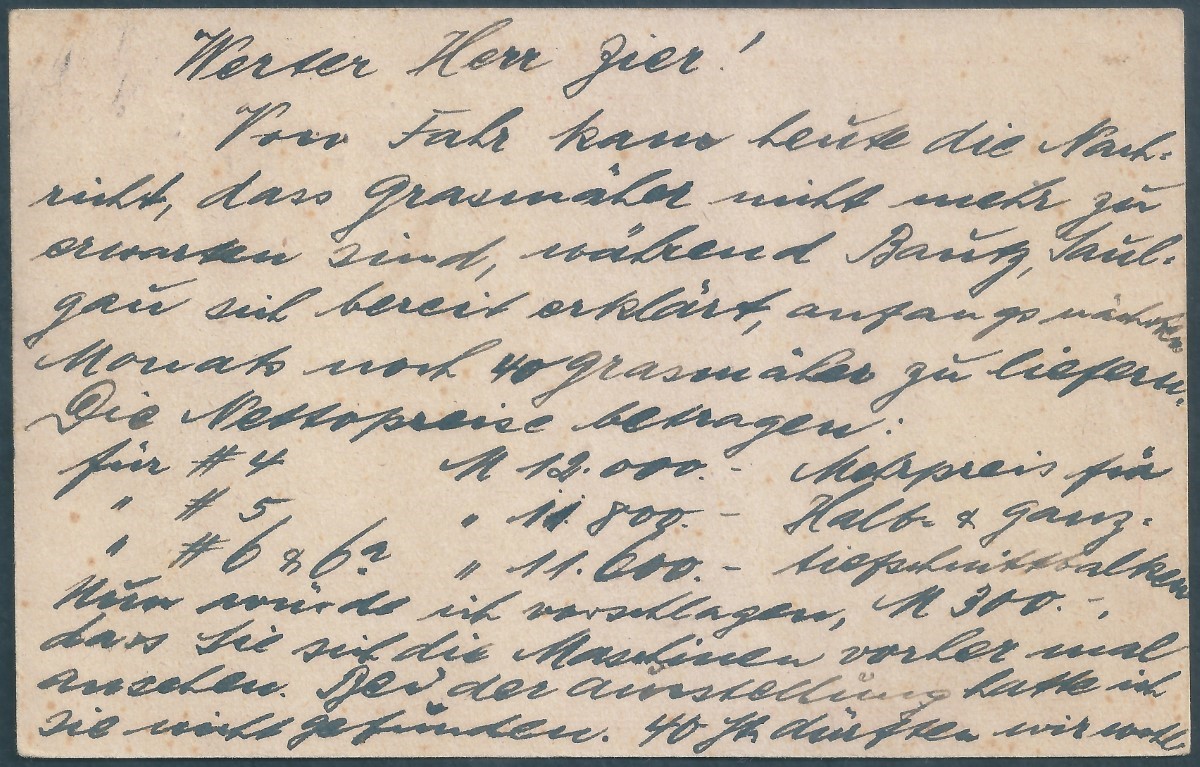 Werter Herr Zier!
Von Fahr kam heute die Nach-
richt, dass Grasmäher nicht mehr zu
erwarten sind, während Bautz, Saul-
gau sich bereit erklärt, anfangs nächsten
Monats noch 40 Grasmäher zu liefern.
Die Nettopreise betragen:
für # 4 M 12.000.- Mehrpreis für
" # 5 " 11.800.- Halb- & Ganz-
" # 6 & 6a " 11.600.- tiefschnittbalken
Nun würde ich vorschlagen, M 300.-,
dass Sie sich die Maschinen vorher mal
ansehen. Bei der Ausstellung hatte ich
sie nicht gefunden. 40 St. dürften wir wohl